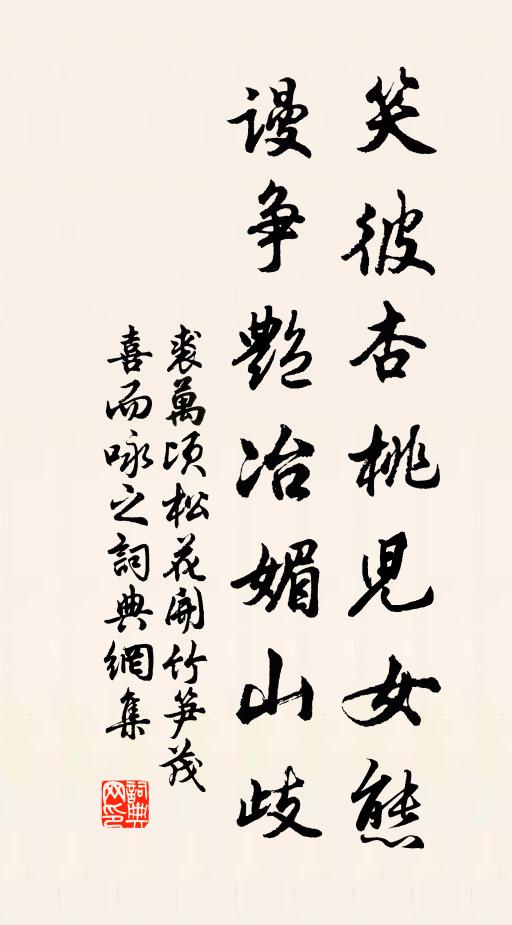 笑彼杏桃児女態
謾争艷冶媚山歧
裘萬頃松花開竹笋茂
喜而咏之詞典網集
詞典
网印